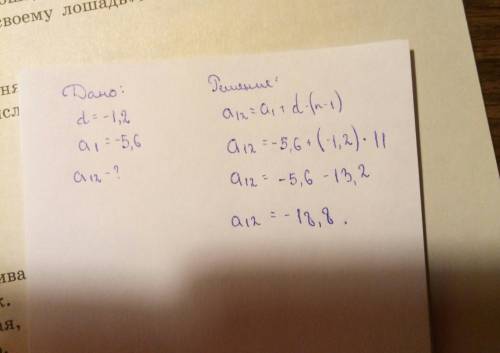 своему лошадь
Дано:
d = -1,2
a₁ = -5,6
a₁₂ - ?
Решение:
a₁₂ = a₁ + d · (n-1)
a₁₂ = -5,6 + (-1,2) · 11
a₁₂ = -5,6 - 13,2
a₁₂ = -18,8.